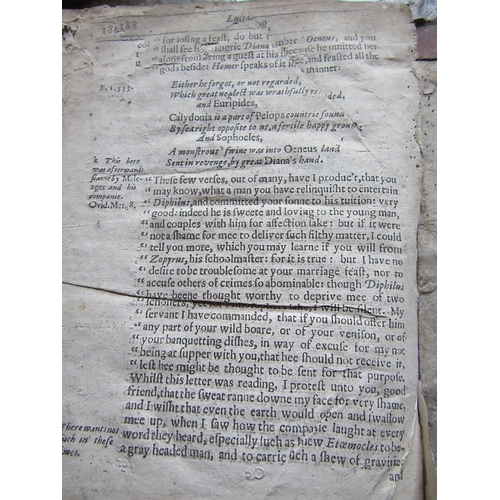 188
Lucia
for losing a feast, do but
shall see how angrie Diana Oeneus, and you
alone from being a guest at his because he omitted her
gods beside: Homer speaks of it and feasted all the
manner:
Either he forgot, or not regarded,
Which great neglect was wrathfully
and Euripides,
Calydonia is a part of Pelops countrie found
By sea right opposite to us, a fertile happy ground
And Sophocles,
A monstrous swine was into Oeneus land
Sent in revenge, by great Diana's hand.
k This bore
was afterwards
slaine by Mele-
ager and his
companie.
Ovid. Met. 8.
“These few verses, out of many, have I produc't, that you
“may know, what a man you have relinquisht to entertain
“Diphilus, and committed your sonne to his tuition: very
“good: indeed he is sweete and loving to the young man,
“and couples with him for affection sake: but if it were
“not a shame for mee to deliver such filthy matter, I could
“tell you more, which you may learne if you will from
“Zopyrus, his schoolmaster: for it is true: but I have no
“desire to be troublesome at your marriage feast, nor to
“accuse others of crimes so abominable: though Diphilus
“have beene thought worthy to deprive mee of two
“schollers, yet for sake, I will be silent. My
“servant I have commanded, that if you should offer him
“any part of your wild boare, or of your venison, or of
“your banquetting dishes, in way of excuse for my not
“being at supper with you, that hee should not receive it,
“lest hee might be thought to be sent for that purpose.
Whilst this letter was reading, I protest unto you, good
friend, that the sweat ranne downe my face for very shame,
and I wisht that even the earth would open and swallow
mee up, when I saw how the companie laught at every
word they heard, especially such as knew Etœmocles to be
a gray headed man, and to carrie such a shew of gravitie:
and
there wants not
such in these
times.